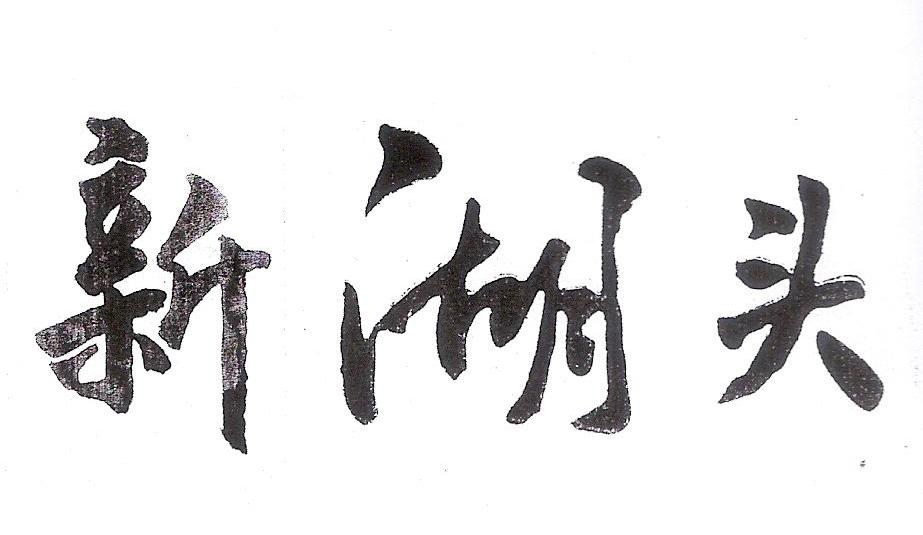 新湖头